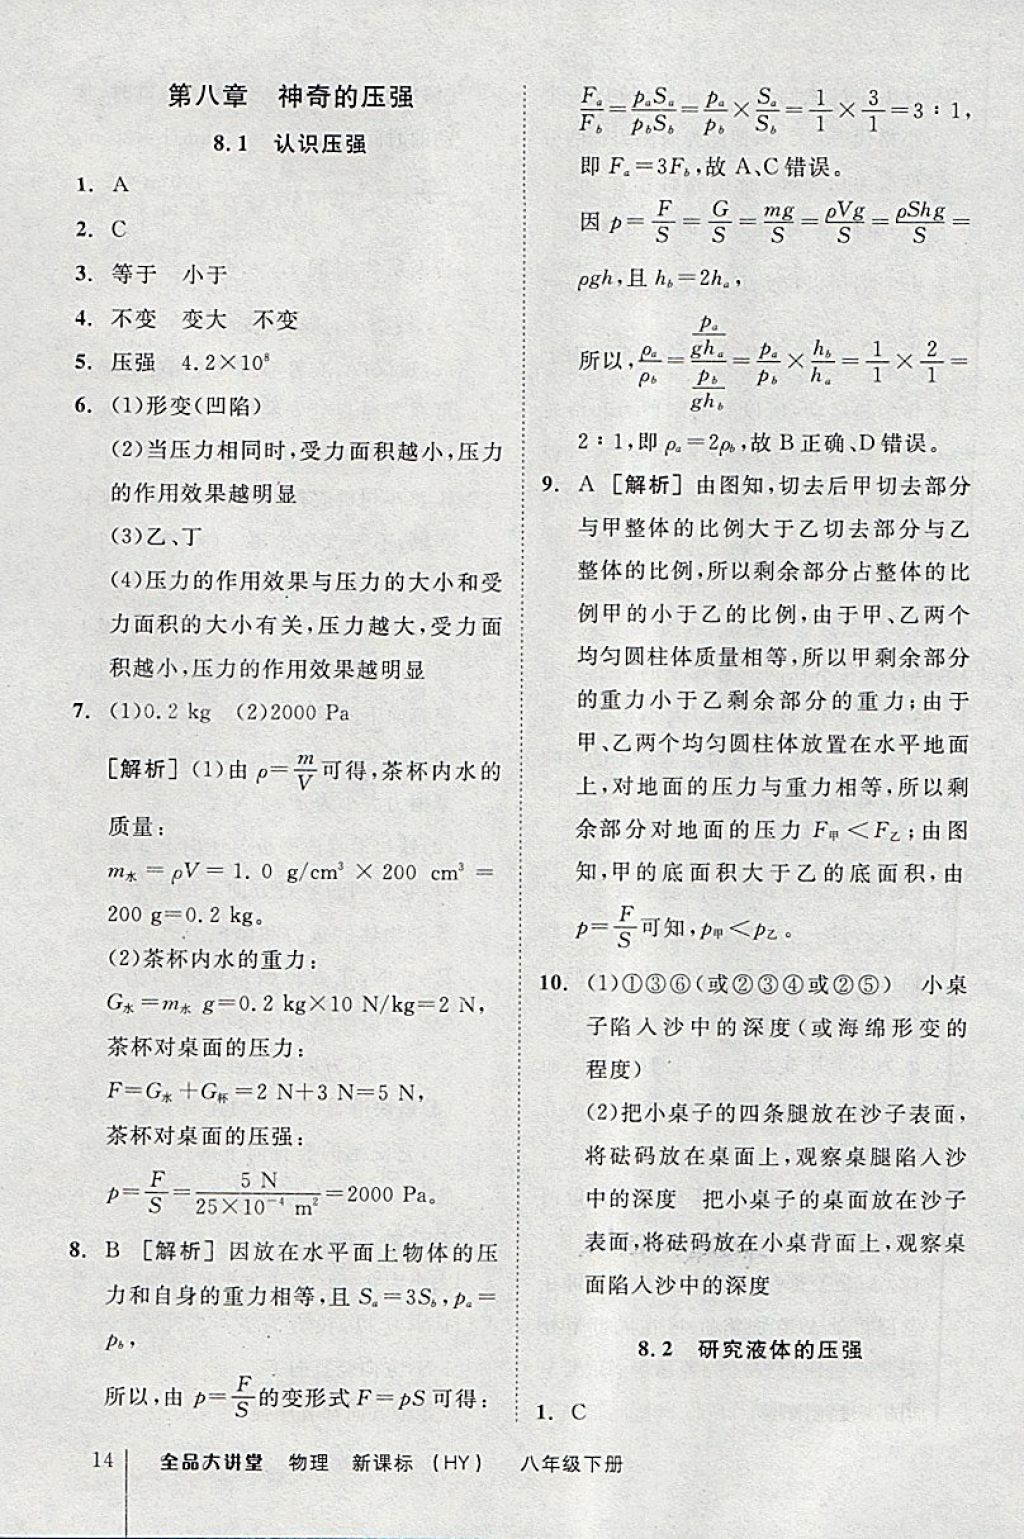 第八章 神奇的压强
8.1 认识压强
1. A
2. C
3. 等于 小于
4. 不变 变大 不变
5. 压强 4.2×10⁸
6. (1)形变(凹陷)
(2)当压力相同时,受力面积越小,压力
的作用效果越明显
(3)乙、丁
(4)压力的作用效果与压力的大小和受
力面积的大小有关,压力越大,受力面
积越小,压力的作用效果越明显
7. (1)0.2 kg (2)2000 Pa
[解析](1)由 ρ=m/V可得,茶杯内水的
质量:
m水=ρV=1.0 g/cm³×200 cm³=
200 g=0.2 kg。
(2)茶杯内水的重力:
G水=m水 g=0.2 kg×10 N/kg=2 N,
茶杯对桌面的压力:
F=G水+G杯=2 N+3 N=5 N,
茶杯对桌面的压强:
p=F/S=5 N/(25×10⁻⁴ m²)=2000 Pa。
8. B [解析]因放在水平面上物体的压
力和自身的重力相等,且 Sa=3Sb,pa=
pb,
所以,由 p=F/S的变形式 F=pS 可得:
Fa/Fb=paSa/pbSb=pa/pb×Sa/Sb=1/1×3/1=3∶1,
即 Fa=3Fb,故 A、C 错误。
因 p=F/S=G/S=mg/S=ρVg/S=ρShg/S=
ρgh,且 hb=2ha,
所以,ρa/ρb=(pa/gha)/(pb/ghb)=pa/pb×hb/ha=1/1×2/1=
2∶1,即 ρa=2ρb,故 B 正确、D 错误。
9. A [解析]由图知,切去后甲切去部分
与甲整体的比例大于乙切去部分与乙
整体的比例,所以剩余部分占整体的比
例甲的小于乙的比例,由于甲、乙两个
均匀圆柱体质量相等,所以甲剩余部分
的重力小于乙剩余部分的重力;由于
甲、乙两个均匀圆柱体放置在水平地面
上,对地面的压力与重力相等,所以剩
余部分对地面的压力 F甲<F乙;由图
知,甲的底面积大于乙的底面积,由
p=F/S可知,p甲<p乙。
10. (1)①③⑥(或②③④或②⑤) 小桌
子陷入沙中的深度(或海绵形变的
程度)
(2)把小桌子的四条腿放在沙子表面,
将砝码放在桌面上,观察桌腿陷入沙
中的深度 把小桌子的桌面放在沙子
表面,将砝码放在小桌背面上,观察桌
面陷入沙中的深度
8.2 研究液体的压强
1. C
14 全品大讲堂 物理 新课标 (HY) 八年级下册